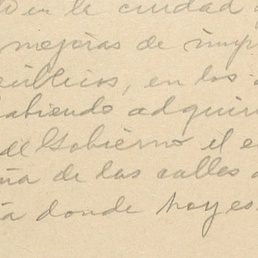 en la ciudad
mejoras de
públicos, en los
habiendo adquiri
de Gobierno el e
de las calles
donde hoy es